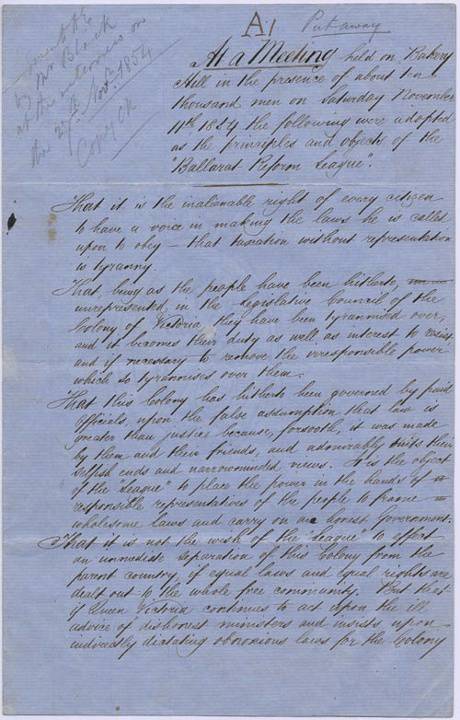 A1
Put away
by Mr Black
at the interview on
the 27th Novr. 1854
Copy CK
At a Meeting held on Bakery
Hill in the presence of about ten
thousand men on Saturday November
11th 1854 the following were adopted
as the principles and objects of the
"Ballarat Reform League".
That it is the inalienable right of every citizen
to have a voice in making the laws he is called
upon to obey – that taxation without representation
is tyranny.
That, being as the people have been hitherto,
unrepresented in the Legislative Council of the
Colony of Victoria, they have been tyrannised over,
and it becomes their duty as well as interest to resist,
and if necessary to remove the irresponsible power
which so tyrannises over them.
That this Colony has hitherto been governed by paid
Officials, upon the false assumption that law is
greater than justice because, forsooth, it was made
by them and their friends, and admirably suits their
selfish ends and narrowminded views. It is the object
of the "League" to place the power in the hands of
responsible representatives of the people to frame
wholesome laws and carry on an honest Government.
That it is not the wish of the "League" to effect
an immediate separation of this Colony from the
parent country, if equal laws and equal rights are
dealt out to the whole free community. But that
if Queen Victoria continues to act upon the ill
advice of dishonest ministers and insists upon
indirectly dictating obnoxious laws for the Colony